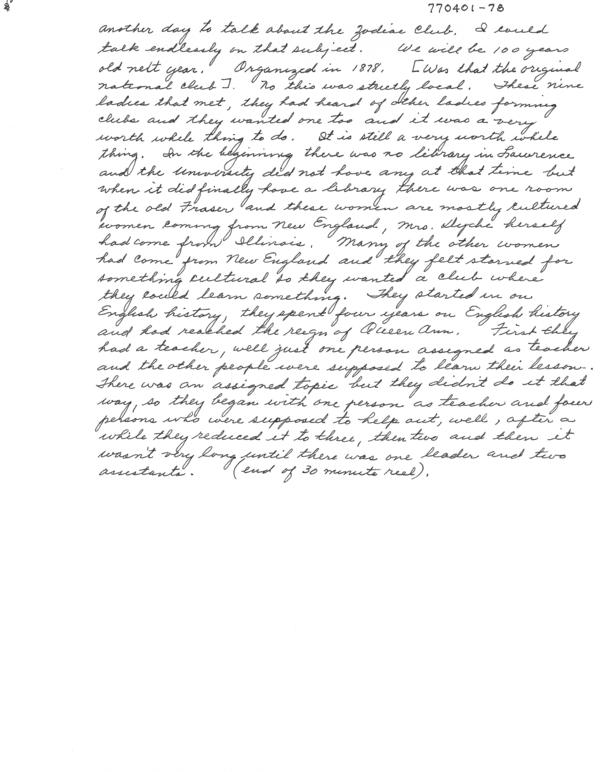 770401-78
another day to talk about the Zodiac Club. I could
talk endlessly on that subject. We will be 100 years
old nett year. Organized in 1878. [Was that the original
national club]. No this was strictly local. These nine
ladies that met, they had heard of other ladies forming
clubs and they wanted one too and it was a very
worth while thing to do. It is still a very worth while
thing. In the beginning there was no library in Lawrence
and the University did not have any at that time but
when it did finally have a library there was one room
of the old Fraser and these women are mostly cultured
women coming from New England, Mrs. Dyche herself
had come from Illinois. Many of the other women
had come from New England and they felt starved for
something cultural so they wanted a club where
they could learn something. They started in on
English history, they spent four years on English history
and had reached the reign of Queen Ann. First they
had a teacher, well just one person assigned as teacher
and the other people were supposed to learn their lesson.
There was an assigned topic but they didn't do it that
way, so they began with one person as teacher and four
persons who were supposed to help out, well, after a
while they reduced it to three, then two and then it
wasn't very long until there was one leader and two
assistants. (end of 30 minute reel).